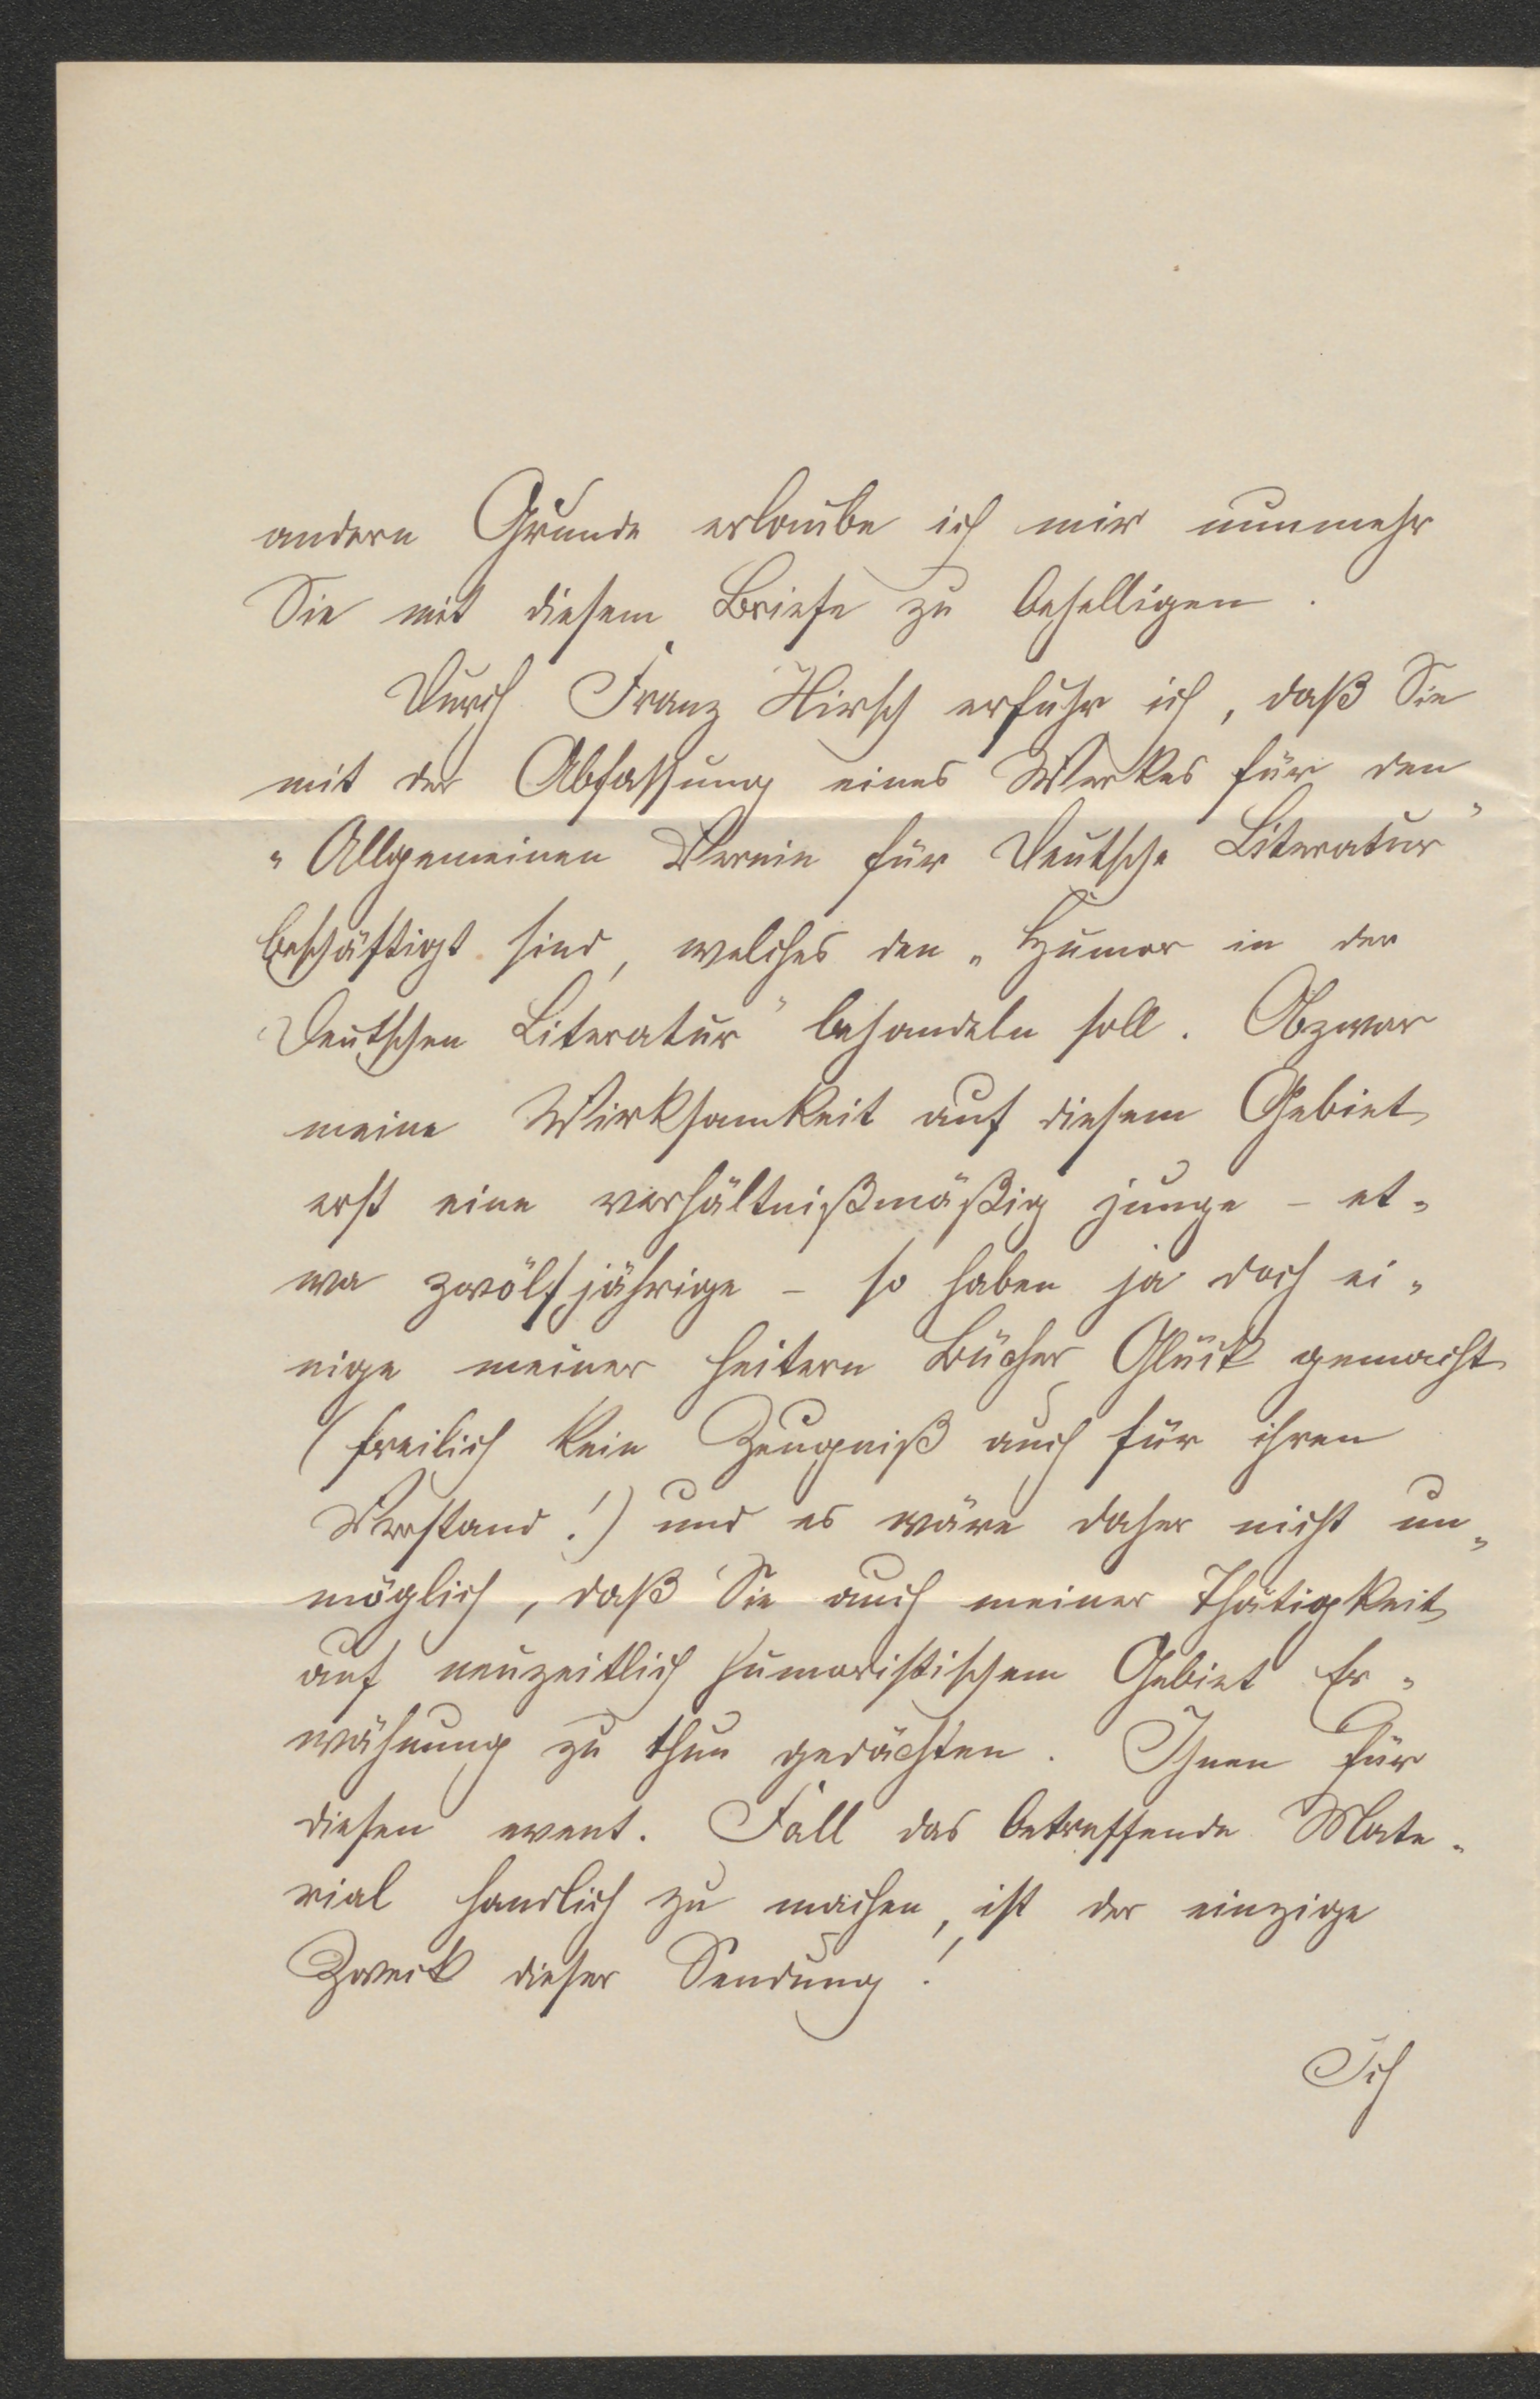 andern Grunde erlaube ich mir nunmehr
Sie mit diesem Briefe zu behelligen.
Durch Franz Hirsch erfuhr ich, daß Sie
mit der Abfassung eines Werkes für den
„Allgemeinen Verein für Deutsche Literatur"
beschäftigt sind, welches den „Humor in der
Deutschen Literatur" behandeln soll. Obzwar
meine Wirksamkeit auf diesem Gebiet
erst eine verhältnißmäßig junge – et-
wa zwölfjährige – so haben ja doch ei-
nige meiner heitern Bücher Glück gemacht
(freilich kein Zeugniß auch für ihren
Verstand!) und es wäre daher nicht un-
möglich, daß Sie auch meiner Thätigkeit
auf neuzeitlich humoristischem Gebiet Er-
wähnung zu thun gedächten. Ihnen für
diesen event. Fall das betreffende Mate-
rial handlich zu machen, ist der einzige
Zweck dieser Sendung!
Ich